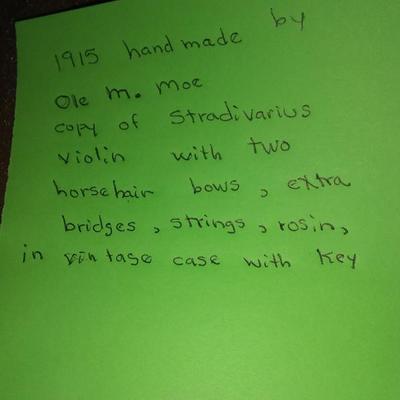 1915 hand made by
Ole M. Moe
copy of Stradivarius
violin with two
horsehair bows, extra
bridges, strings, rosin,
in vintage case with key